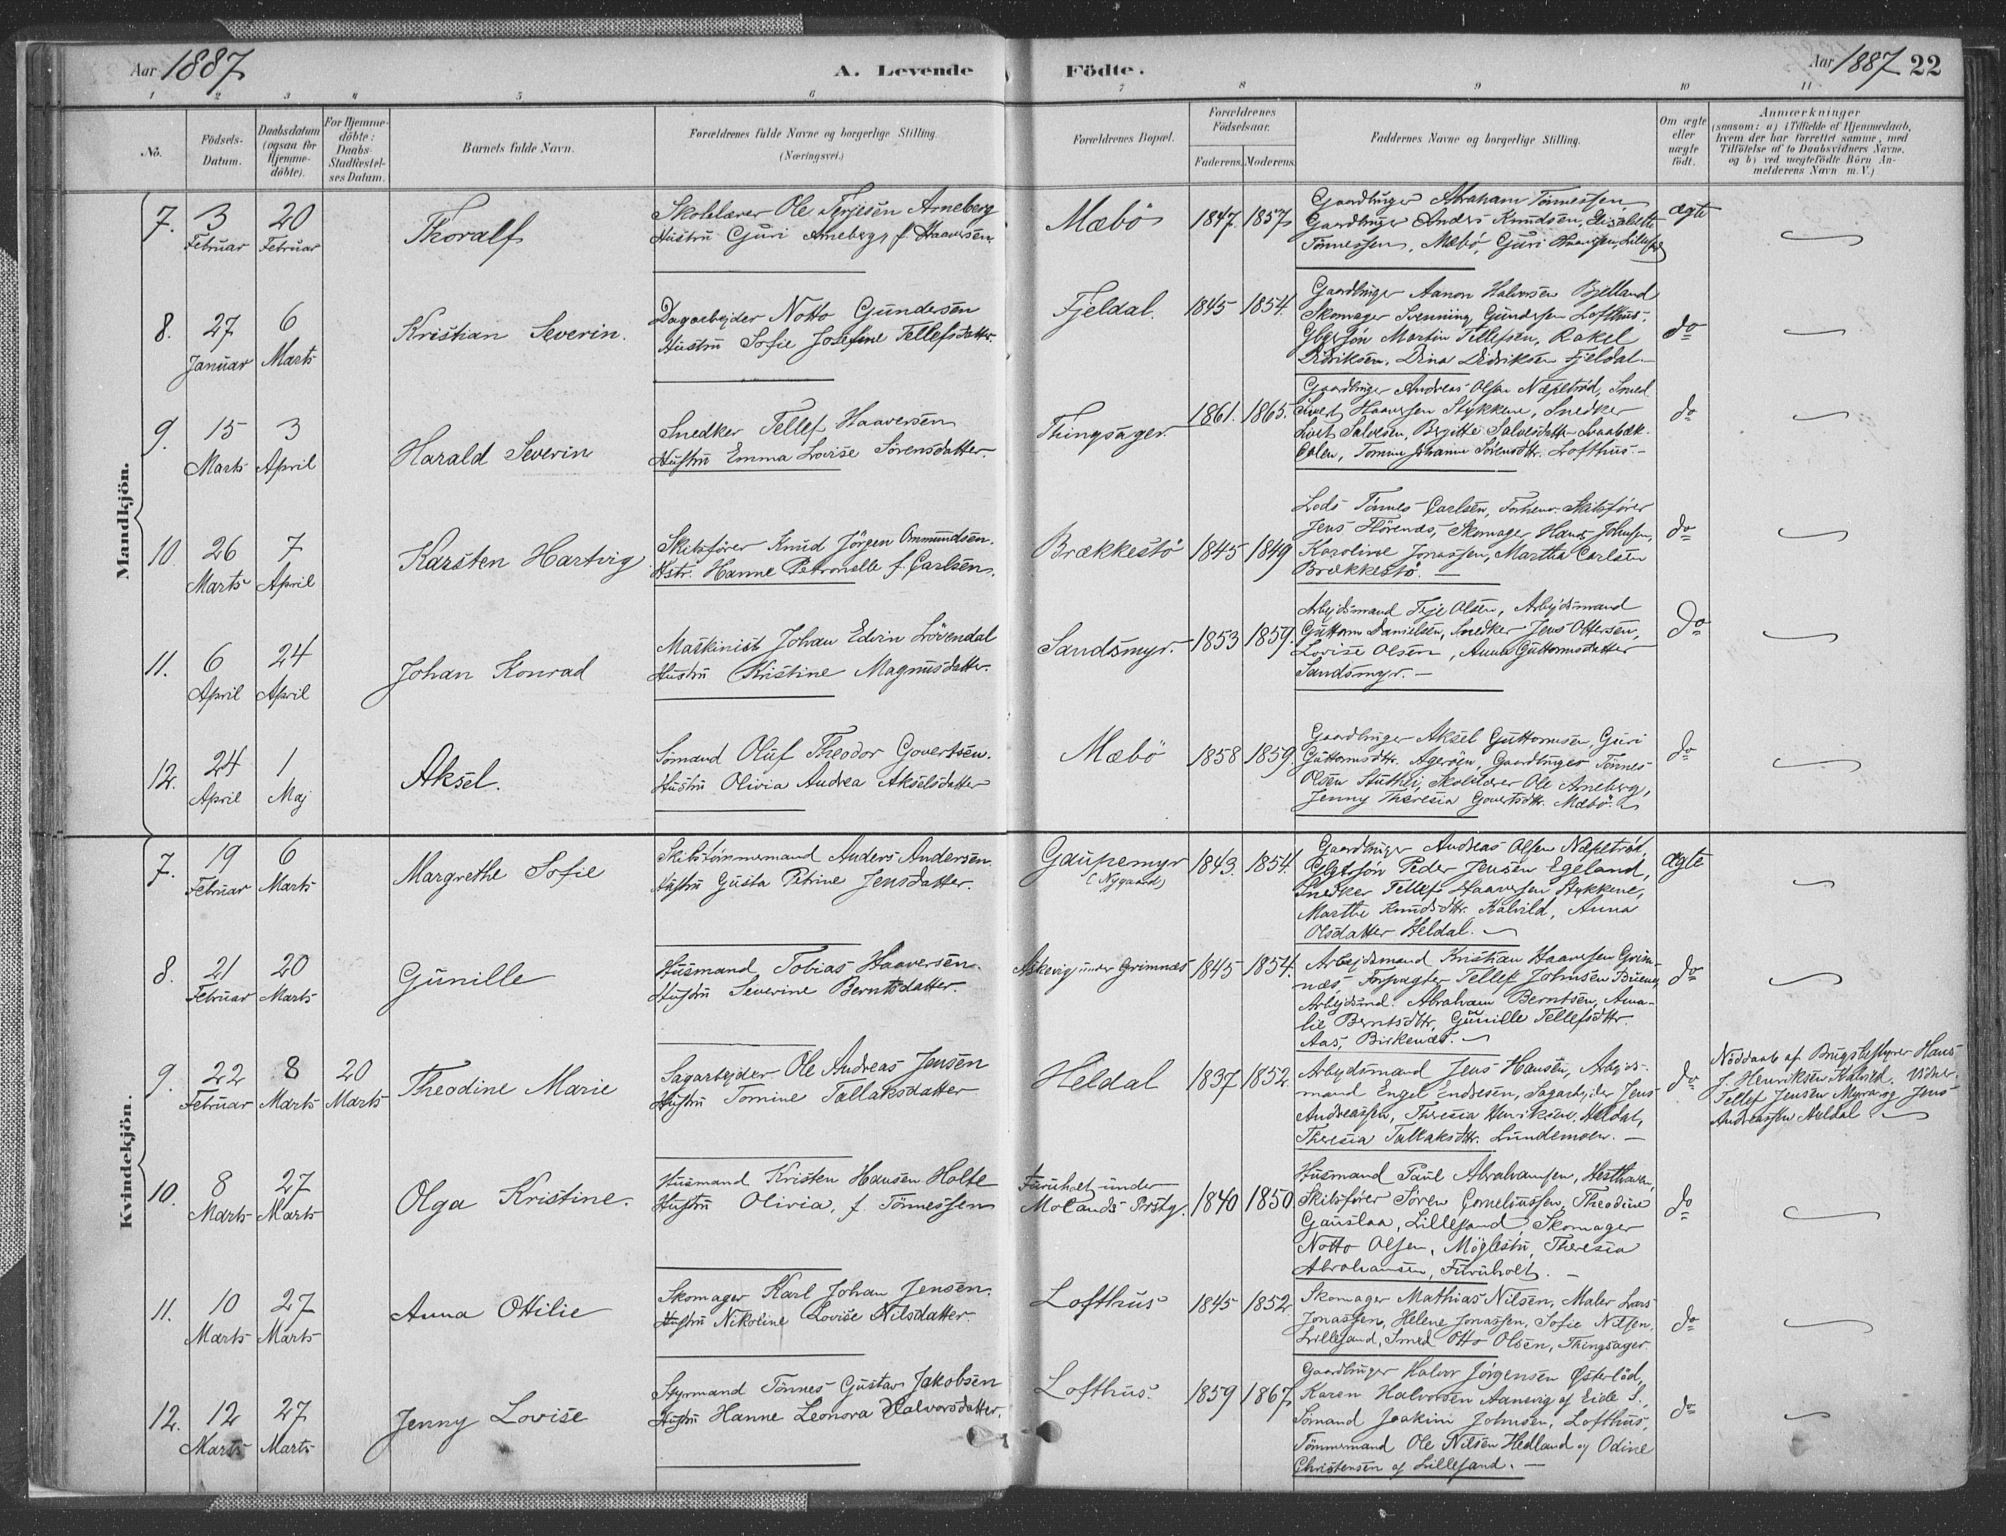 Aar 1887 A. Levende Födte. Aar 1887 22
1 2 3 4 5 6 7 8 9 10 11
No. Födsels-Datum. Daabsdatum (ogsaa for Hjemme-döbte). For Hjemme-döbte: Daabs-Stadfæstel-ses Datum. Barnets fulde Navn. Forældrenes fulde Navne og borgerlige Stilling. (Næringsvei.) Forældrenes Bopæl. Forældrenes Födselsaar. Faderens. Moderens. Faddernes Navne og borgerlige Stilling. Om ægte eller uægte födt. Anmærkninger (saasom: a) i Tilfælde af Hjemmedaab, hvem der har forrettet samme, med Tilföielse af to Daabsvidners Navne, og b) ved uægtefödte Börn An-melderens Navn m. V.)
Mandkjön.
7. 3 Februar 20 Februar Thoralf
Skolelærer Ole Terjesen Arneberg
Hustru Guri Arneberg f. Haaversen
Mæbö 1847. 1857
Gaardbruger Abraham Tönnessen,
Gaardbruger Anders Knudsen, Elisabette
Tönnessen, Mæbö, Guri Haaversen, Lillesand
ægte
8. 27 Januar 6 Marts Kristian Severin.
Dagarbejder Notto Gundersen
Hustru Sofie Josefine Tellefsdatter.
Fjeldal. 1845 1854.
Gaardbruger Aanon Halvorsen Bjelland
Skomager Svenning Gundersen Lofthus.
Gbgr.sön Martin Tellefsen, Rakel
Didriksen, Dina Didriksen Fjeldal.
do
9. 15 Marts 3 April Harald Severin
Snedker Tellef Haaversen
Hustru Emma Lovise Sörensdatter.
Thingsager. 1861. 1865.
Gaardbruger Andreas Olsen Næsetröd, Smed
Sivert Haaversen Stykkene, Snedker
Sivert Salvesen, Birgitte Salvesdatter Svaabæk-
Johanne Sörensdtr. Lofthus.
do
10. 26 Marts 7 April Karsten Hartvig
Skibsförer Knud Jörgen Ommundsen.
Hstr. Hanne Petronelle f. Carlsen.
Brækkestö 1845 1849
Lods Tönnes Carlsen, Forhenv. Skibsförer
Jens Hörenæs, Skomager Hans Johnsen,
Karoline Jonassen, Martha Carlsen
Brækkestö.
do
11. 6 April 24 April Johan Konrad
Maskinist Johan Edvin Lövendal
Hustru Kristine Magnusdatter.
Sandsmyr. 1853 1859.
Arbejdsmand Terje Olsen, Arbejdsmand
Guttorm Danielsen, Snedker Jens Ottersen,
Lovise Olsen, Anna Guttormsdatter
Sandsmyr.
do
12. 24 April 1 Maj Aksel.
Sömand Oluf Theodor Govertsen.
Hustru Olivia Andrea Akselsdatter
Mæbö 1858 1859.
Gaardbruger Aksel Guttormsen, Guri
Guttormsdtr. Ageröen, Gaardbruger Tönnes
Olsen Stuthei, Skolelærer Ole Arneberg,
Jenny Theresia Govertsdtr. Mæbö.
do
Kvindekjön.
7. 19 Februar 6 Marts Margrethe Sofie
Skibstömmermand Anders Andersen.
Hustru Gusta Petrine Jensdatter.
Gaupemyr (Nygaard) 1843. 1854.
Gaardbruger Andreas Olsen Næsetröd,
Gbgr.sön Peder Jensen Egeland,
Snedker Tellef Haaversen Stykkene,
Marthe Knudsdtr. Kalvild, Anna
Olsdatter Heldal.
ægte
8. 21 Februar 20 Marts Gunille
Husmand Tobias Haaversen.
Hustru Severine Berntsdatter.
Askevig under Grimnæs 1845 1854.
Arbejdsmand Kristian Haaversen Grim-
næs, Forpagter Tellef Johnsen Buene,
Arbejdsmd. Abraham Berntsen, Ama-
lie Berntsdtr., Gunille Tellefsdtr.
Aas, Birkenæs.
do
9. 22 Februar 8 Marts 20 Marts Theodine Marie
Sagarbejder Ole Andreas Jensen
Hustru Tomine Tallaksdatter
Heldal 1837 1852.
Arbejdsmand Jens Hansen, Arbejds-
mand Engel Endresen, Sagarbejder Jens
Andreassen, Theresia Henriksen, Heldal,
Theresia Tallaksdtr. Lundemoen.
do
Nöddaab af Brugsbestyrer Hans
J. Henriksen Kalvild. Vidner
Tellef Jensen Myra og Jens
Andreassen Heldal
10. 8 Marts 27 Marts Olga Kristine.
Husmand Kristen Hansen Holte
Hustru Olivia, f. Tönnessen
Furuholt under
Molands Prstg. 1840 1850
Husmand Paul Abrahamsen, Hesthaven,
Skibsförer Sören Corneliussen, Theodine
Gauslaa, Lillesand Skomager
Notto Olsen, Möglestu, Theresia
Abrahamsen, Furuholt.
do
11. 10 Marts 27 Marts Anna Otilie
Skomager Karl Johan Jensen.
Hustru Nikoline Lovise Nilsdatter.
Lofthus 1845 1852
Skomager Mathias Nilsen, Maler Lars
Jonassen, Helene Jonassen, Sofie Nilsen,
Lillesand, Smed Otto Olsen, Thingsager
do
12. 12 Marts 27 Marts Jenny Lovise
Styrmand Tönnes Gustav Jakobsen
Hustru Hanne Leonora Halvorsdatter.
Lofthus 1859 1867
Gaardbruger Halvor Jörgensen Österlöd,
Karen Halvorsen Aanevig af Eide S.,
Sömand Joakim Johnsen, Lofthus,
Tömmermand Ole Nilsen Hedland og Odine
Christensen af Lillesand.
do